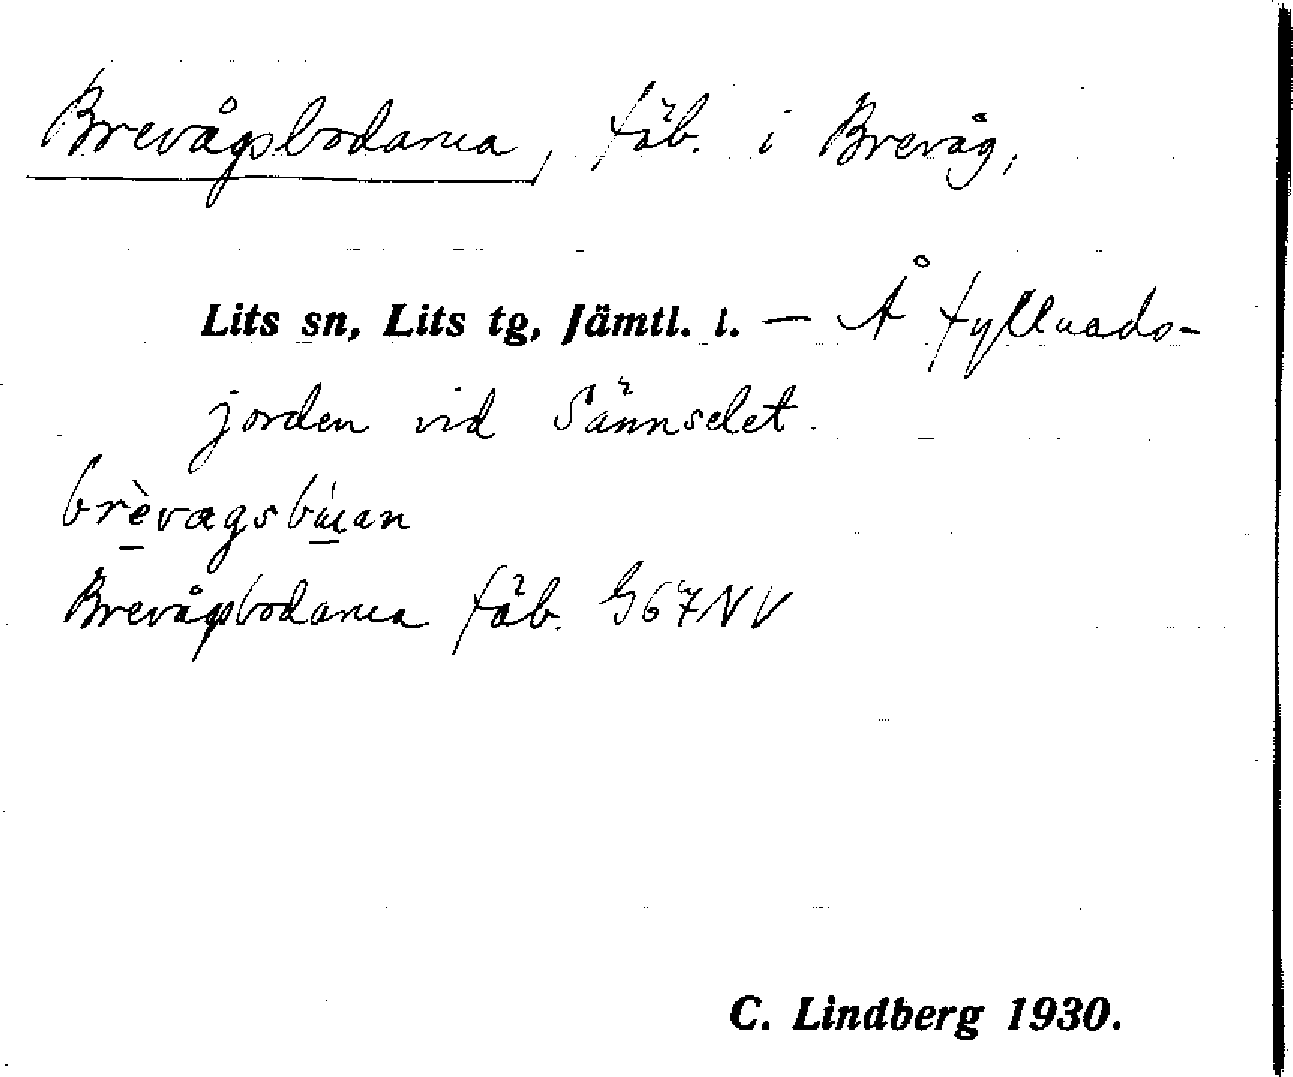 Brevågsbodarna, fäb. i Brevåg,
Lits sn, Lits tg, Jämtl. l. — Å fyllnads-
jorden vid Sännselet.
brèvagsbúan
Brevågsbodarna fäb. G67NV
C. Lindberg 1930.